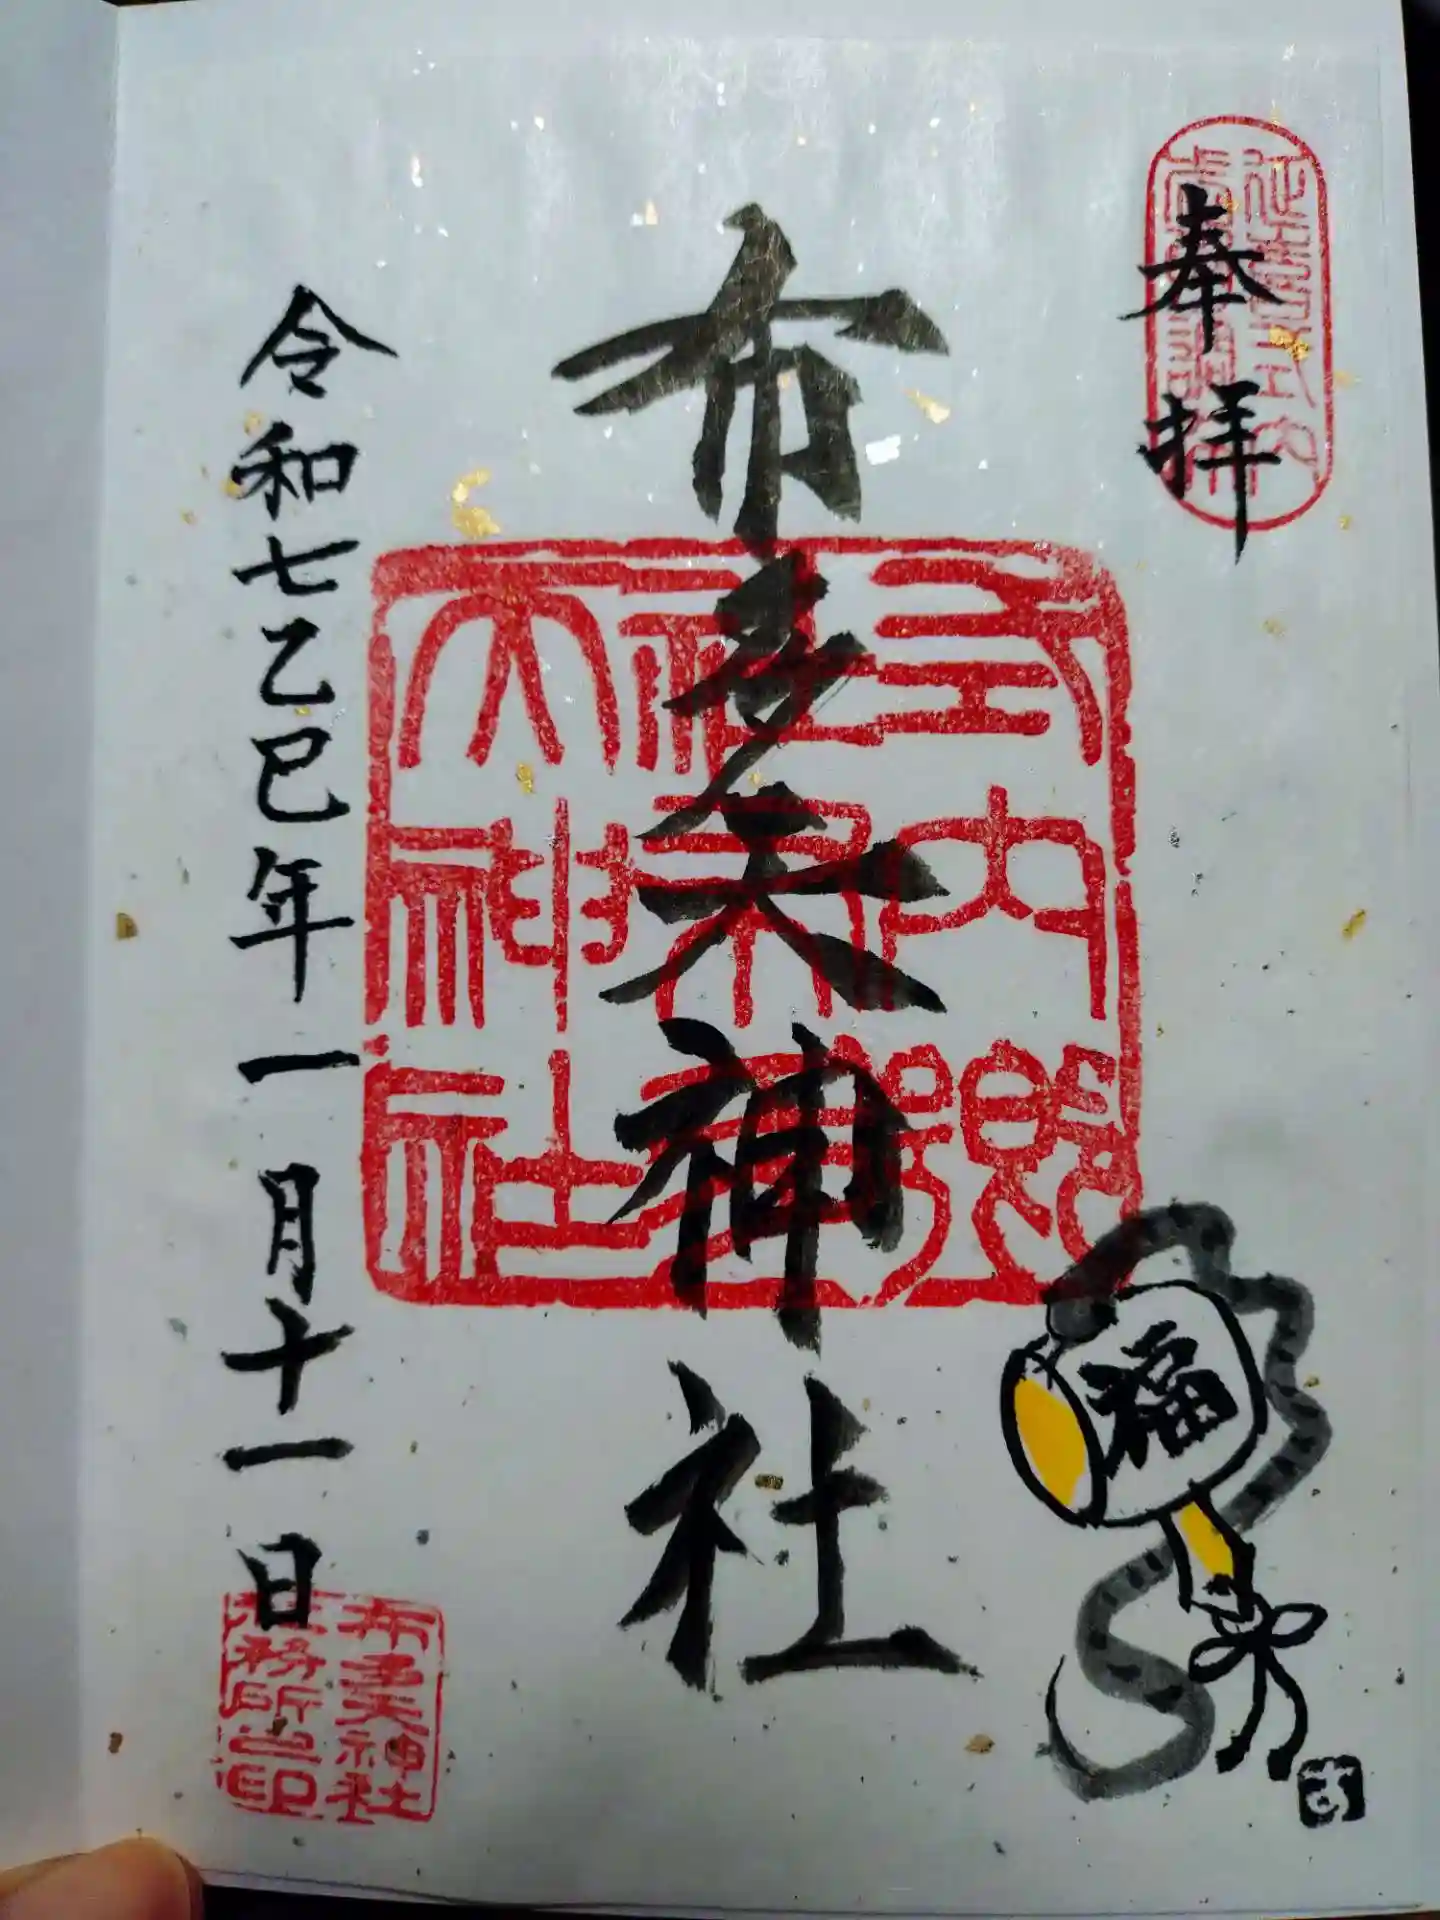 奉拝
延喜式内
布多天神社
式内郷
社布多
天神社
令和七乙巳年一月十一日
布多天神社
社務所之印
福